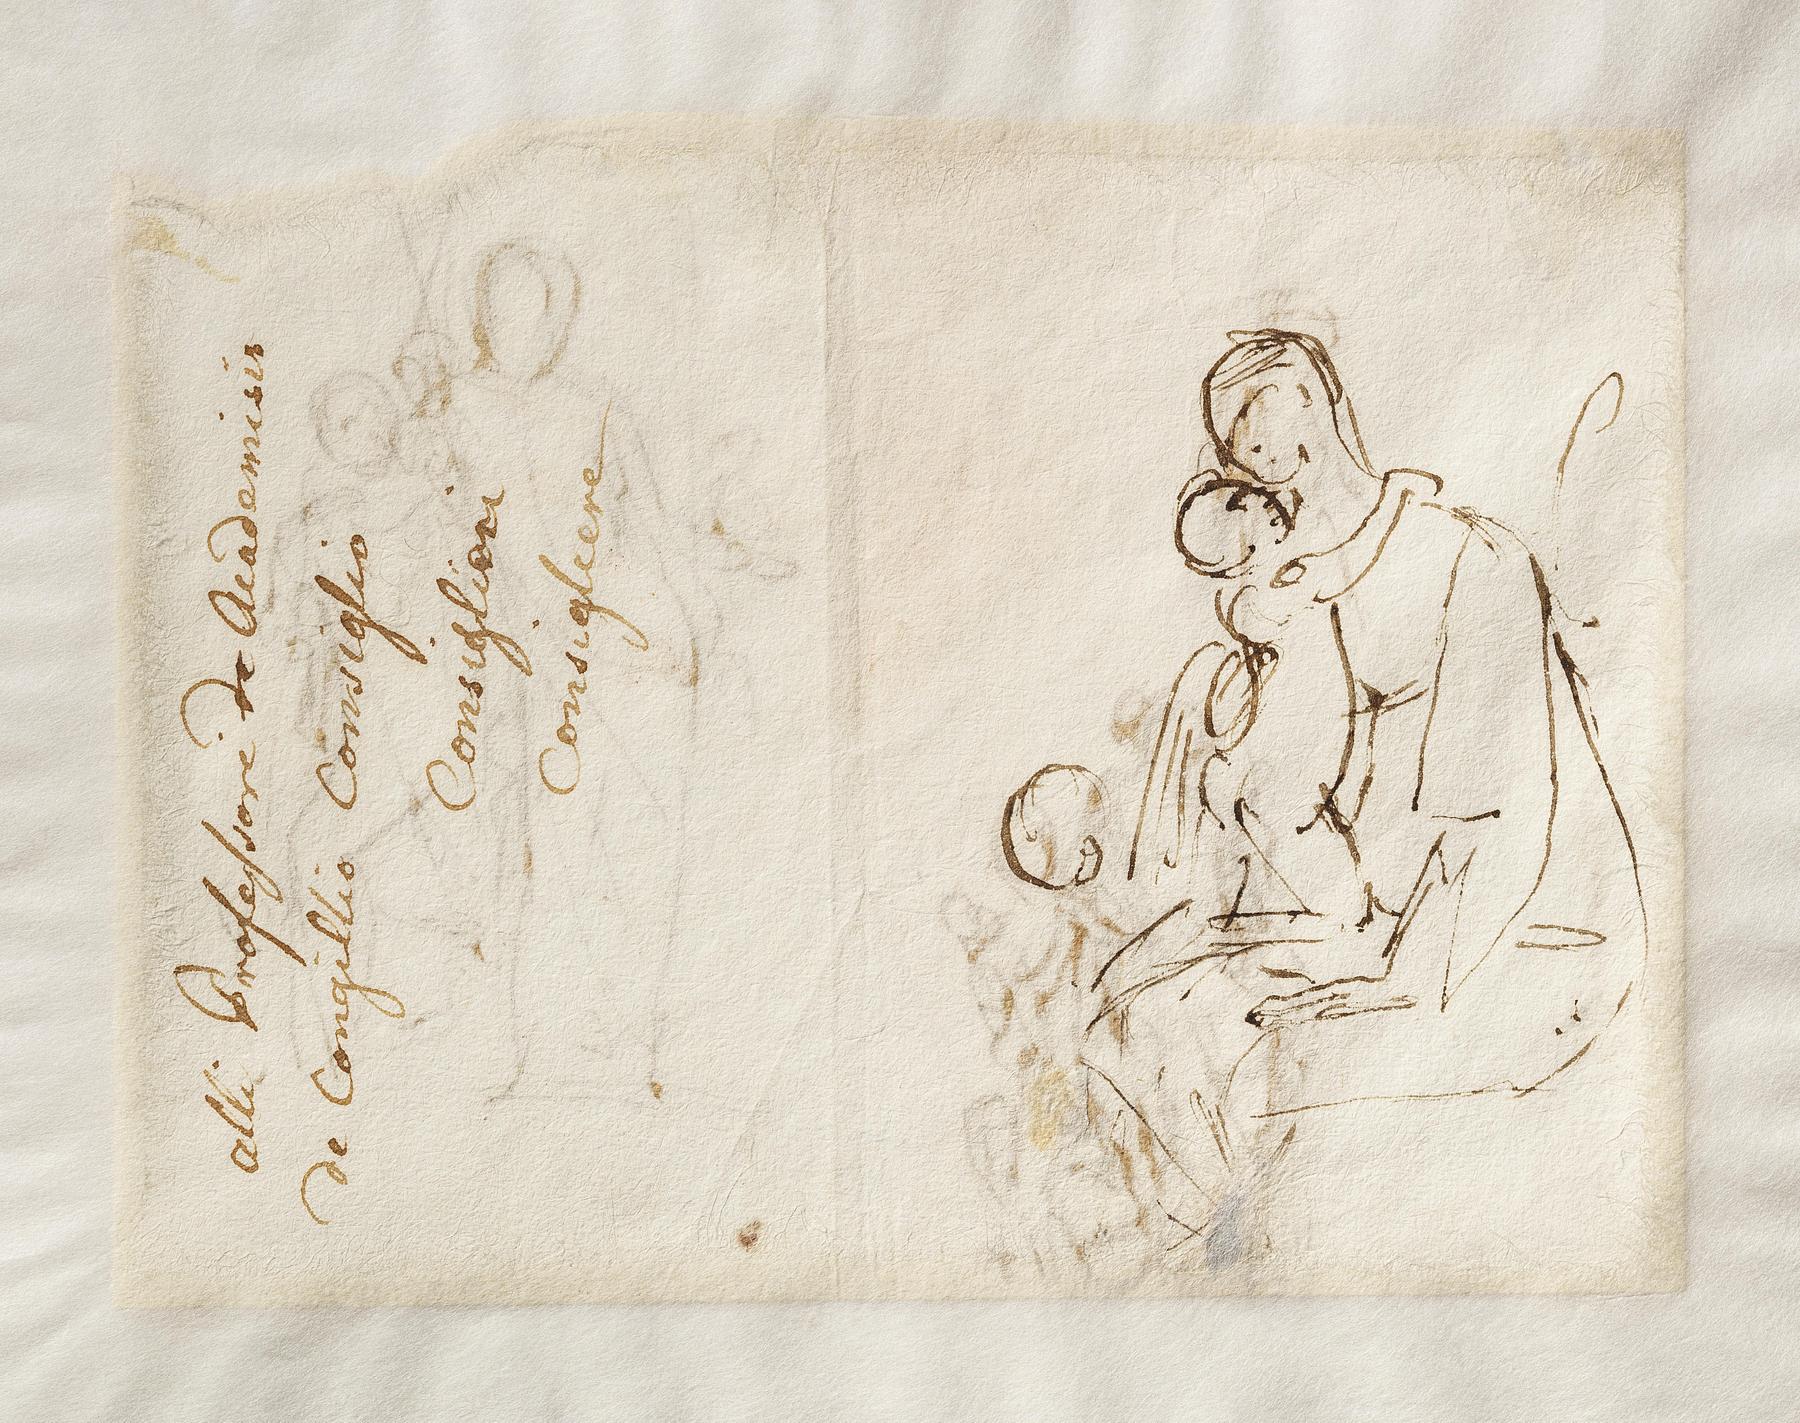 alli Professori de Academisis
de Congillio Consiglio
Consiglieri
Consigliere